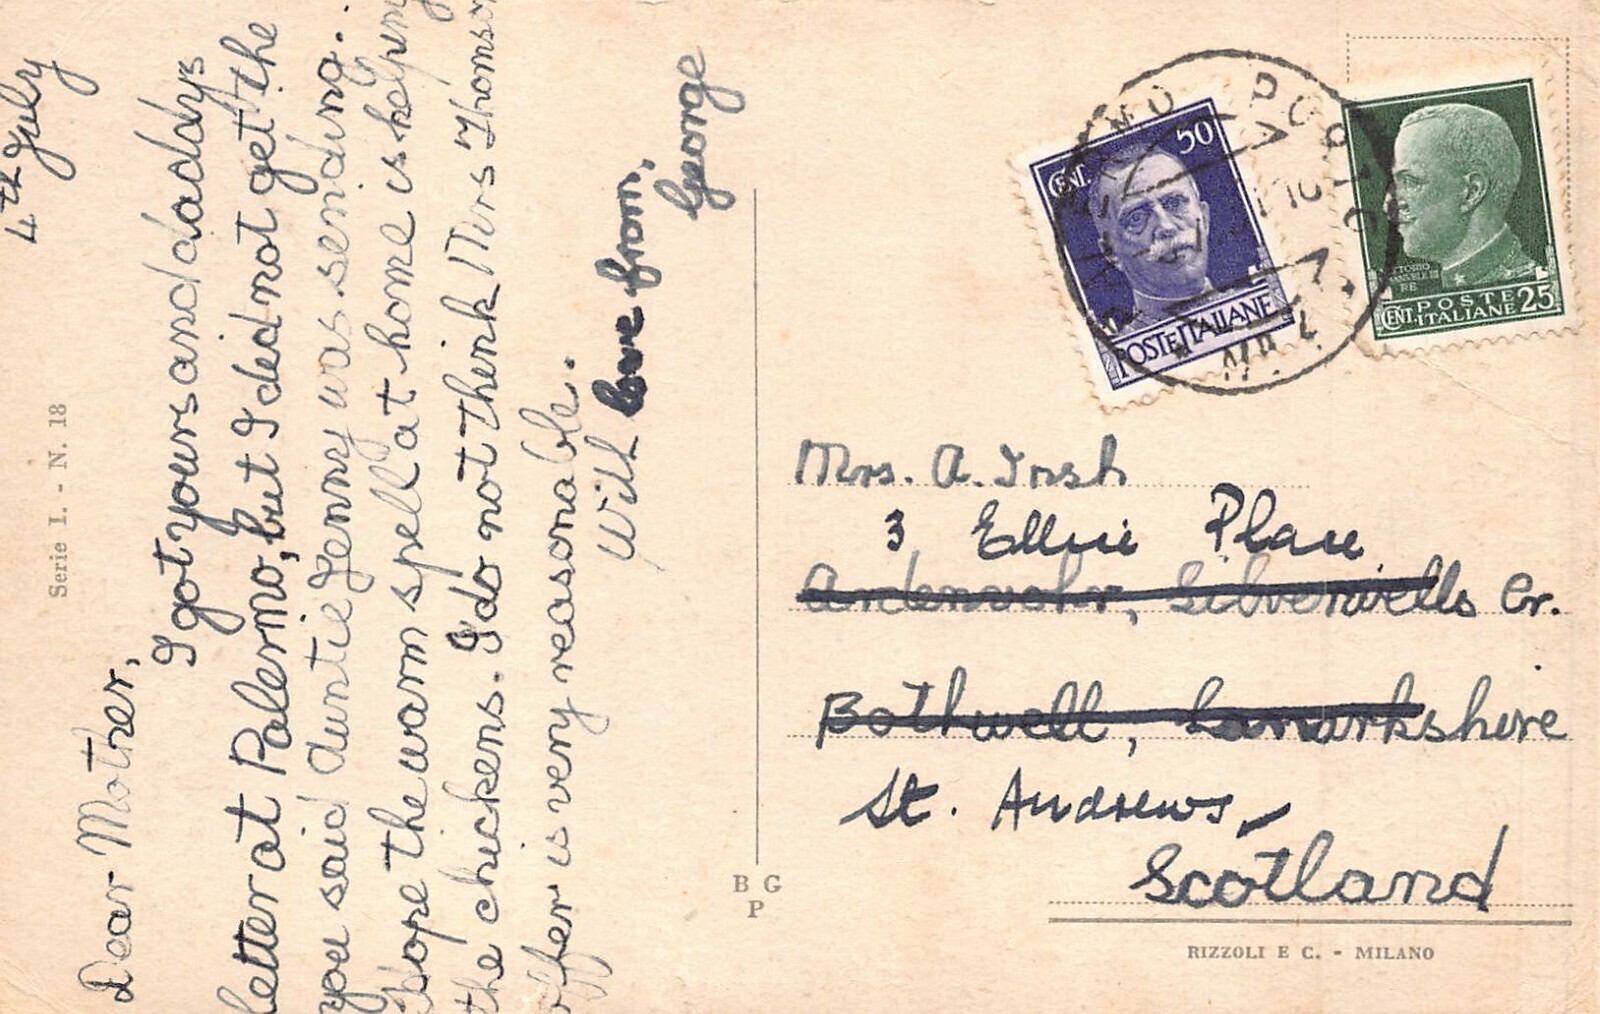 4th July
Dear Mother,
I got yours and daddy's
letter at Palermo, but I did not get the
you said Auntie Jenny was sending.
hope the warm spell at home is helping
the chickens. I do not think Mrs Thomson
offer is very reasonable.
With love from,
George
Serie I. - N. 18
B G
P
CENT. 50
POSTE ITALIANE
VITTORIO
EMANUELE III
RE
CENT. POSTE
ITALIANE 25
PORTO
Mrs. A. Irish
3 Ellice Place
Ardenvohr, Silverwells Cr.
Bothwell, Lanarkshire
St. Andrews,
Scotland
RIZZOLI E C. - MILANO